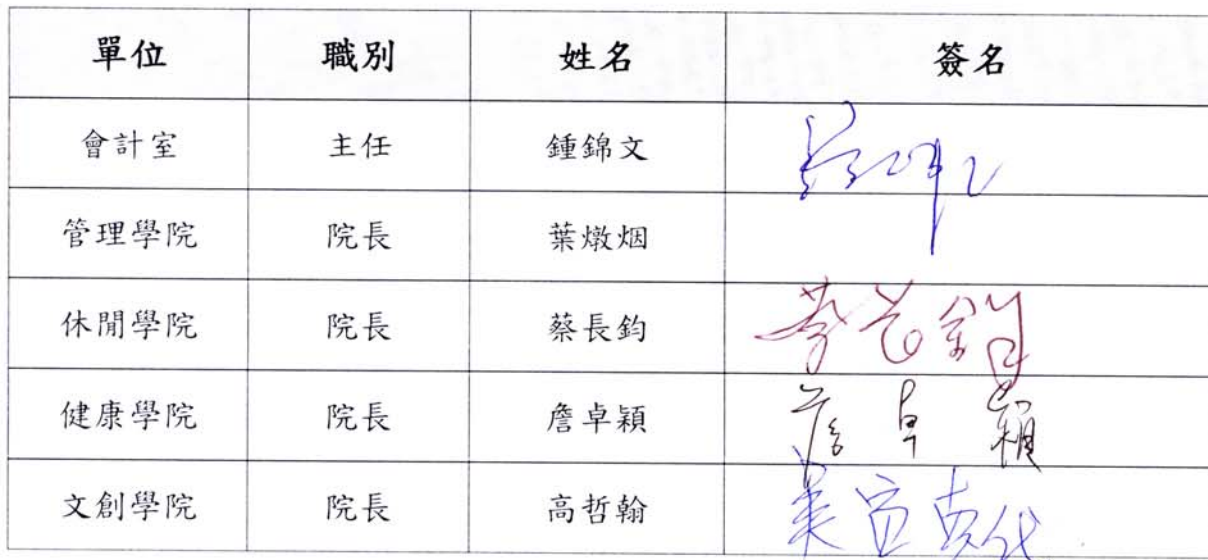 單位 職別 姓名 簽名
會計室 主任 鍾錦文
管理學院 院長 葉燉烟
休閒學院 院長 蔡長鈞 蔡長鈞
健康學院 院長 詹卓穎 詹卓穎
文創學院 院長 高哲翰